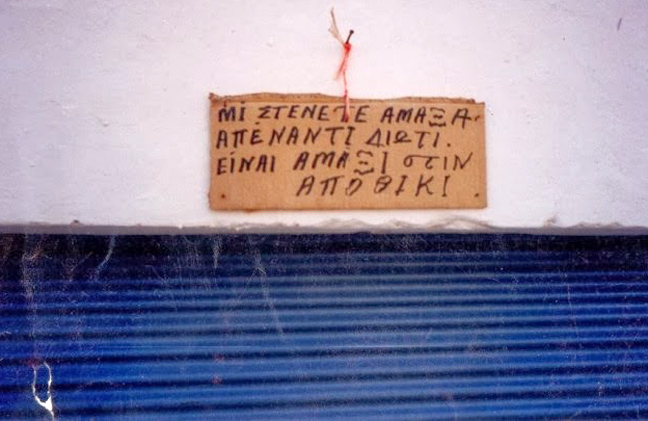 ΜΙ ΣΤΕΝΕΤΕ ΑΜΑΞΑ.
ΑΠΕΝΑΝΤΙ ΔΙΩΤΙ.
ΕΙΝΑΙ ΑΜΑΞΙ σΤΙΝ
ΑΠΟΘΙΚΙ.